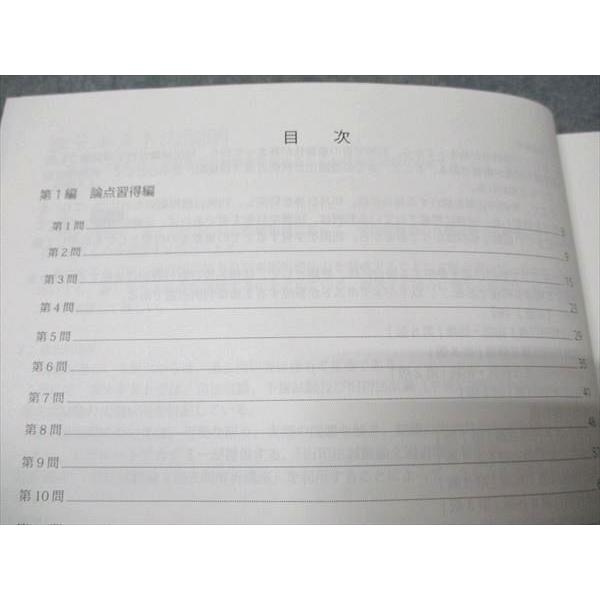 目 次
第1編 論点習得編
第1問 3
第2問 9
第3問 15
第4問 23
第5問 29
第6問 35
第7問 41
第8問 48
第9問 57
第10問